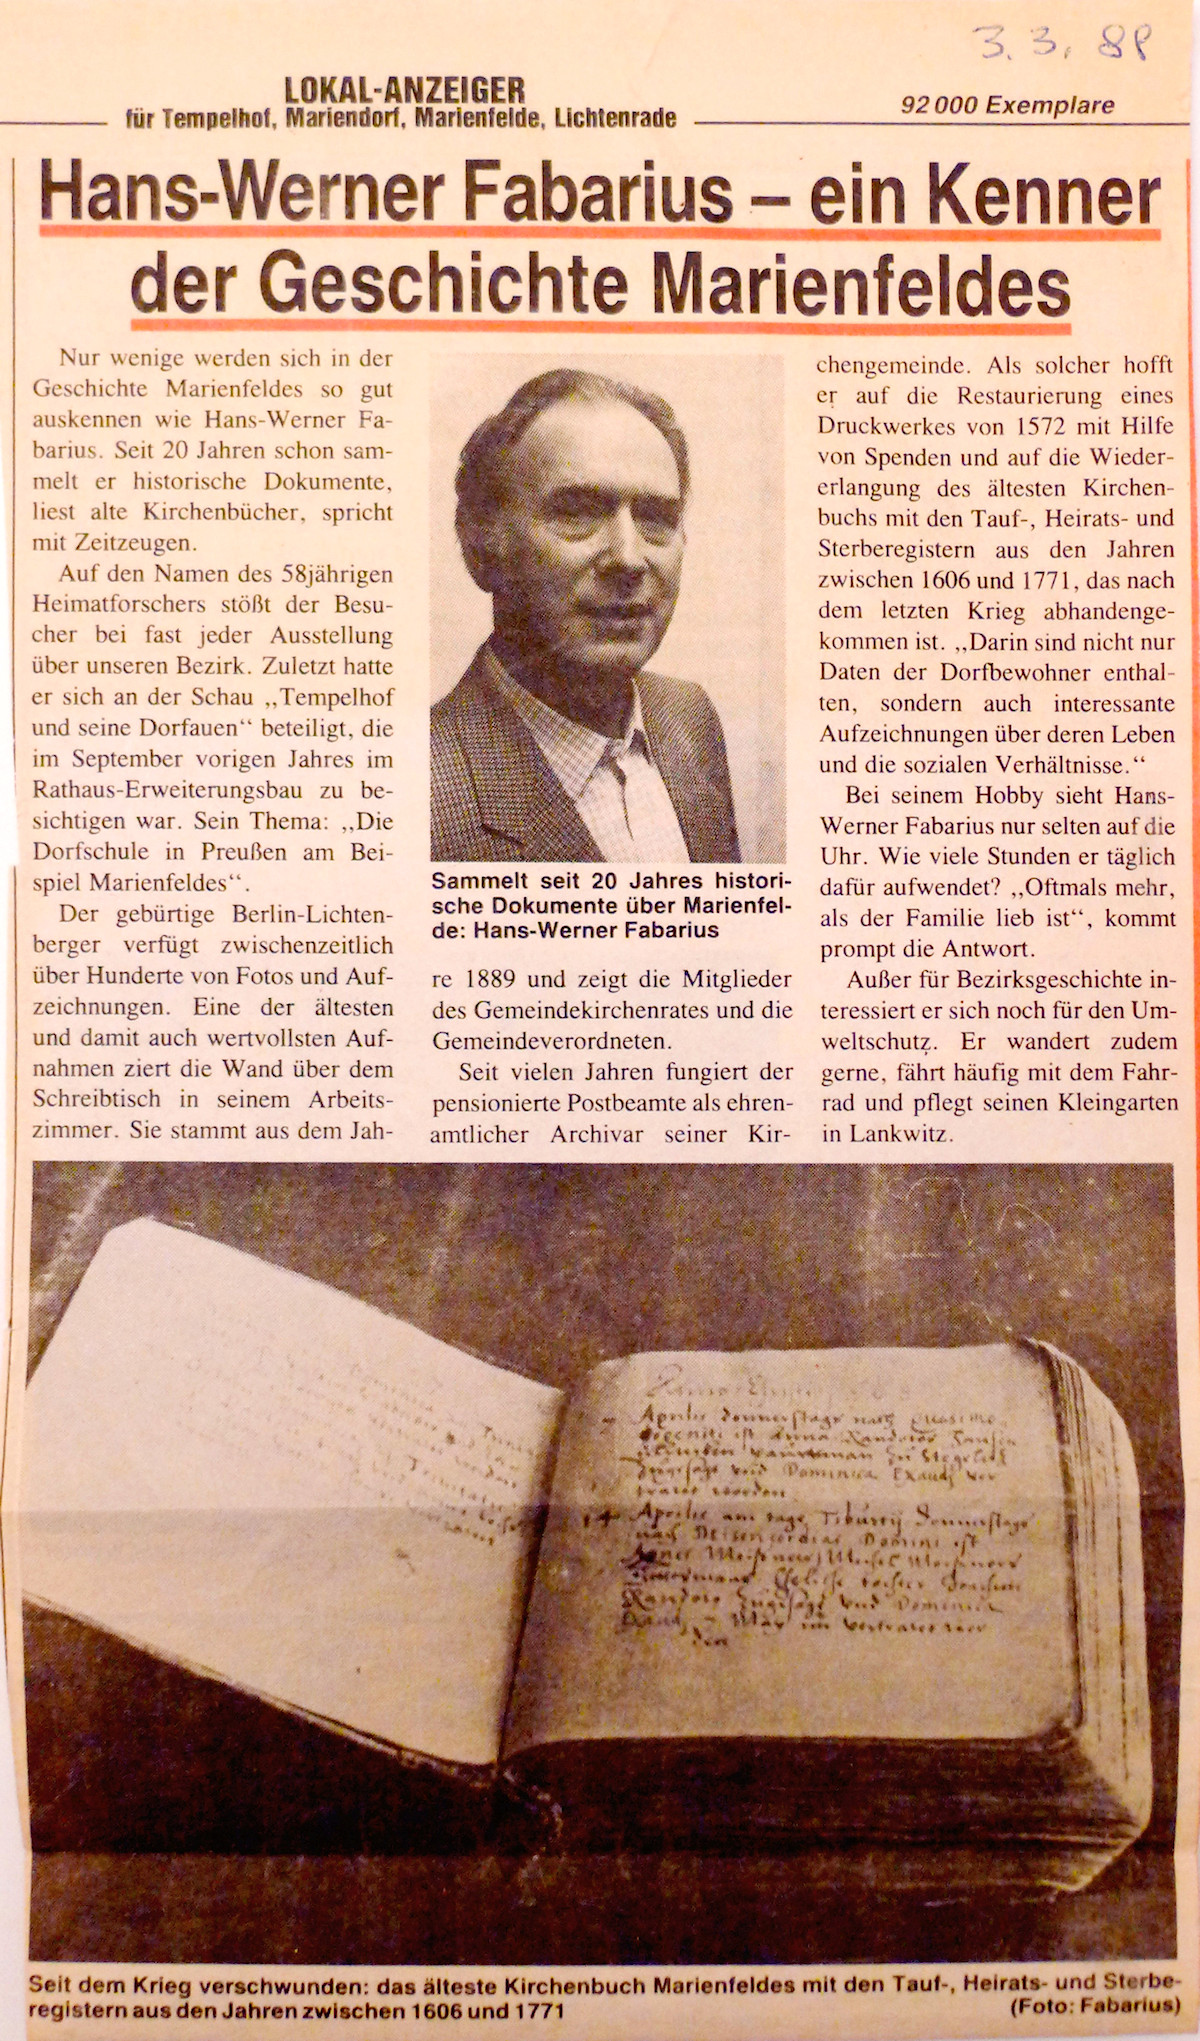 3. 3. 88
LOKAL-ANZEIGER
für Tempelhof, Mariendorf, Marienfelde, Lichtenrade
92 000 Exemplare
Hans-Werner Fabarius – ein Kenner
der Geschichte Marienfeldes
Nur wenige werden sich in der
Geschichte Marienfeldes so gut
auskennen wie Hans-Werner Fa-
barius. Seit 20 Jahren schon sam-
melt er historische Dokumente,
liest alte Kirchenbücher, spricht
mit Zeitzeugen.
Auf den Namen des 58jährigen
Heimatforschers stößt der Besu-
cher bei fast jeder Ausstellung
über unseren Bezirk. Zuletzt hatte
er sich an der Schau „Tempelhof
und seine Dorfauen“ beteiligt, die
im September vorigen Jahres im
Rathaus-Erweiterungsbau zu be-
sichtigen war. Sein Thema: „Die
Dorfschule in Preußen am Bei-
spiel Marienfeldes“.
Der gebürtige Berlin-Lichten-
berger verfügt zwischenzeitlich
über Hunderte von Fotos und Auf-
zeichnungen. Eine der ältesten
und damit auch wertvollsten Auf-
nahmen ziert die Wand über dem
Schreibtisch in seinem Arbeits-
zimmer. Sie stammt aus dem Jah-
Sammelt seit 20 Jahres histori-
sche Dokumente über Marienfel-
de: Hans-Werner Fabarius
re 1889 und zeigt die Mitglieder
des Gemeindekirchenrates und die
Gemeindeverordneten.
Seit vielen Jahren fungiert der
pensionierte Postbeamte als ehren-
amtlicher Archivar seiner Kir-
chengemeinde. Als solcher hofft
er auf die Restaurierung eines
Druckwerkes von 1572 mit Hilfe
von Spenden und auf die Wieder-
erlangung des ältesten Kirchen-
buchs mit den Tauf-, Heirats- und
Sterberegistern aus den Jahren
zwischen 1606 und 1771, das nach
dem letzten Krieg abhandenge-
kommen ist. „Darin sind nicht nur
Daten der Dorfbewohner enthal-
ten, sondern auch interessante
Aufzeichnungen über deren Leben
und die sozialen Verhältnisse.“
Bei seinem Hobby sieht Hans-
Werner Fabarius nur selten auf die
Uhr. Wie viele Stunden er täglich
dafür aufwendet? „Oftmals mehr,
als der Familie lieb ist“, kommt
prompt die Antwort.
Außer für Bezirksgeschichte in-
teressiert er sich noch für den Um-
weltschutz. Er wandert zudem
gerne, fährt häufig mit dem Fahr-
rad und pflegt seinen Kleingarten
in Lankwitz.
Aprilis donnerstags nach
Dominica Exaudi
Aprilis am tage Tiburtij donnerstags
nach Misericordias Domini ist
und Dominica
Seit dem Krieg verschwunden: das älteste Kirchenbuch Marienfeldes mit den Tauf-, Heirats- und Sterbe-
registern aus den Jahren zwischen 1606 und 1771
(Foto: Fabarius)